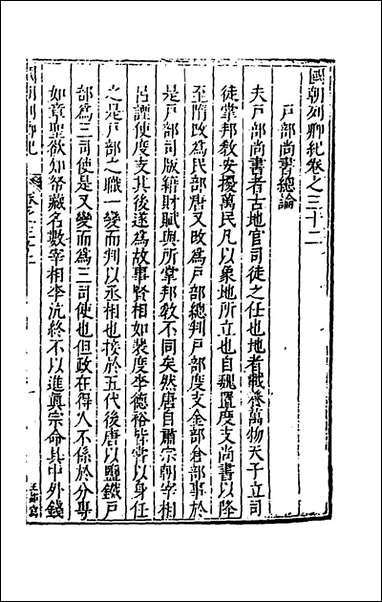 國朝列卿紀卷之三十二
戶部尚書總論
夫戶部尚書者古地官司徒之任也地者載養萬物天子立司
徒掌邦教安擾萬民凡以象地所立也自魏置度支尚書以降
至隋改為民部唐又改為戶部總判戶部度支金部倉部事於
是戶部司版籍財賦與所掌邦教不同矣然唐自肅宗朝宰相
呂諲使度支其後遂為故事賢相如裴度李德裕皆常以身任
之是戶部之職一變而判以丞相也接於五代後唐以鹽鐵戶
部為三司使是又變而為三司使也但政在得人不係於分專
如章聖欲知帑藏名數宰相李沆終不以進眞宗命具中外錢
國朝列卿紀
卷之三十二
一